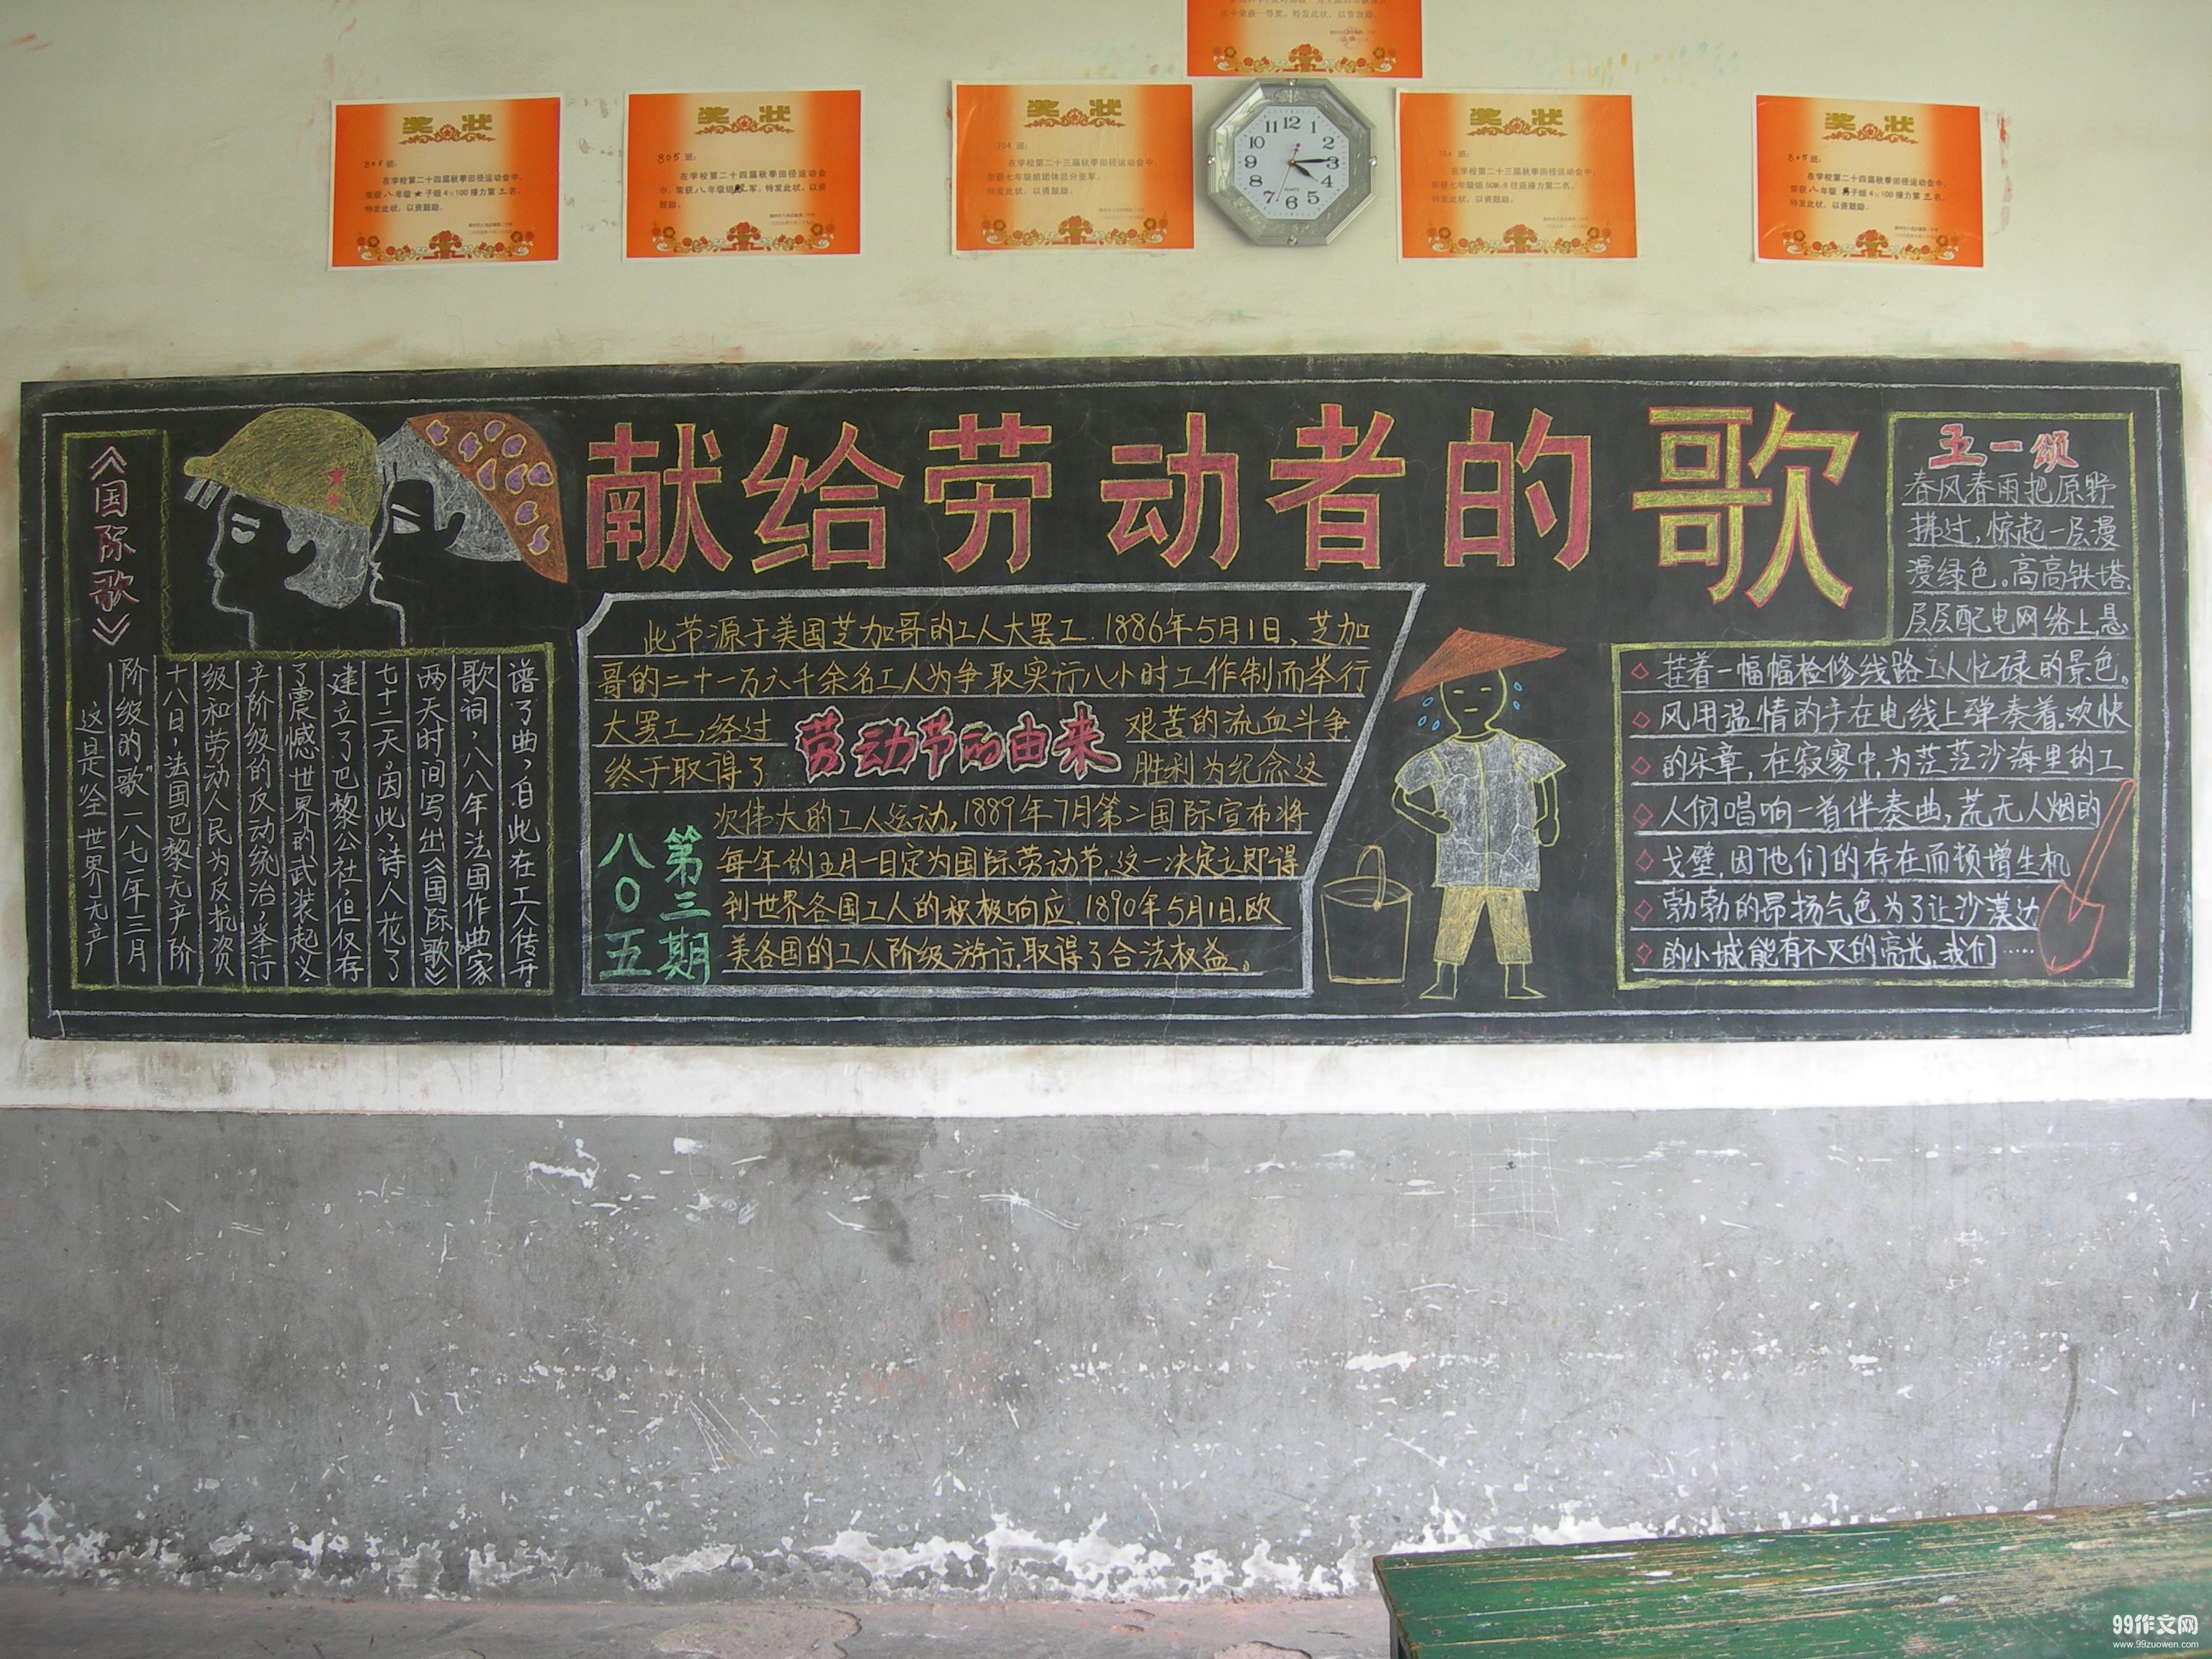 比中荣获一等奖。特发此状，以资鼓励。
奖状
805班:
在学校第二十四届秋季田径运动会中，
荣获八年级女子组4×100接力第三名。
特发此状，以资鼓励。
奖状
805班:
在学校第二十四届秋季田径运动会
中，荣获八年级组军。特发此状，以资
鼓励。
奖状
704班:
在学校第二十三届秋季田径运动会中，
荣获七年级组团体总分亚军。
特发此状，以资鼓励。
12
1
2
3
4
5
6
7
8
9
10
11
QUARTZ
奖状
704班:
在学校第二十三届秋季田径运动会中，
荣获七年级组50M×8往返接力第二名。
特发此状，以资鼓励。
奖状
805班:
在学校第二十四届秋季田径运动会中，
荣获八年级男子组4×100接力第三名。
特发此状，以资鼓励。
献给劳动者的歌
《国际歌》
这是“全世界无产
阶级的歌”一八七一年三月
十八日，法国巴黎无产阶
级和劳动人民为反抗资
产阶级的反动统治，举行
了震憾世界的武装起义，
建立了巴黎公社，但仅存
七十二天。因此，诗人花了
两天时间写出《国际歌》
歌词，八八年法国作曲家
谱了曲，自此在工人传开。
此节源于美国芝加哥的工人大罢工.1886年5月1日、芝加
哥的二十一万六千余名工人为争取实行八小时工作制而举行
大罢工，经过 艰苦的流血斗争
劳动节的由来
终于取得了 胜利为纪念这
次伟大的工人运动，1889年7月第二国际宣布将
每年的五月一日定为国际劳动节，这一决定立即得
到世界各国工人的积极响应.1890年5月1日，欧
美各国的工人阶级游行，取得了合法权益。
第三期
八〇五
五一颂
春风春雨把原野
拂过，惊起一层漫
漫绿色。高高铁塔
层层配电网络上，悬
挂着一幅幅检修线路工人忙碌的景色。
风用温情的手在电线上弹奏着.欢快
的乐章，在寂寥中，为茫茫沙海里的工
人们唱响一首伴奏曲，荒无人烟的
戈壁，因他们的存在而顿增生机
勃勃的昂扬气色，为了让沙漠边
的小城能有不灭的亮光，我们……
99作文网
www.99zuowen.com